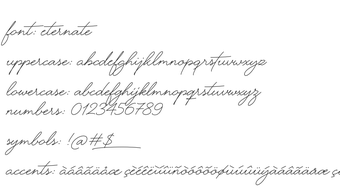 font: eternate
uppercase: abcdefghijklmnopqrstuvwxyz
lowercase: abcdefghijklmnopqrstuvwxyz
numbers: 0123456789
symbols: !@#$_